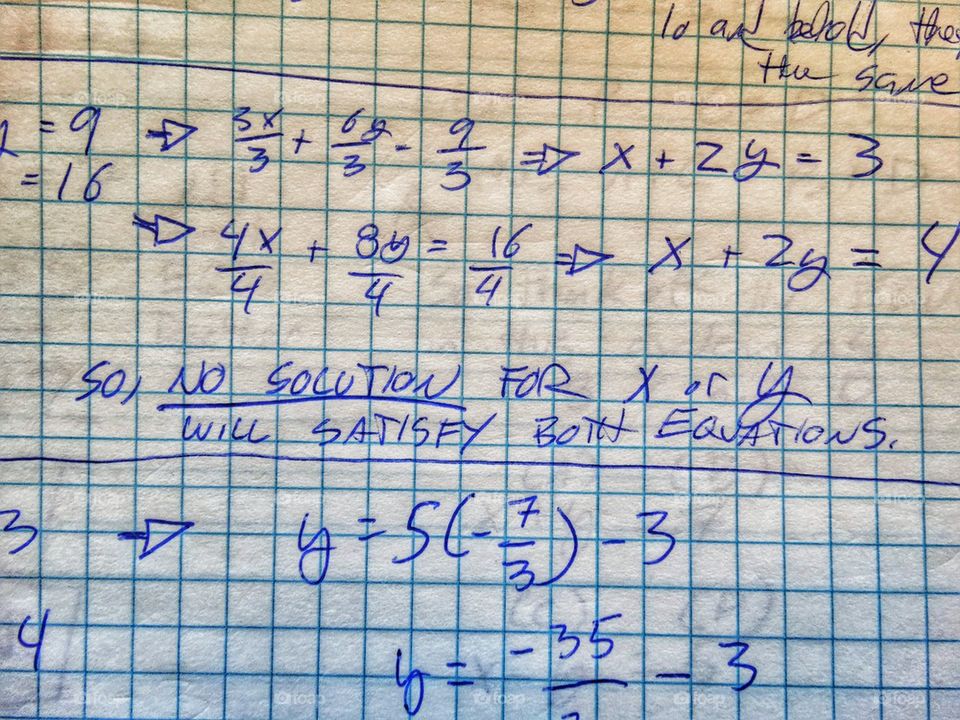 lo and behold, they
the same
= 9 ⇒ 3x/3 + 6y/3 - 9/3 ⇒ x + 2y = 3
= 16
⇒ 4x/4 + 8y/4 = 16/4 ⇒ x + 2y = 4
SO, NO SOLUTION FOR X or y
WILL SATISFY BOTH EQUATIONS.
3 ⇒ y = 5(-7/3) - 3
4
y = -35/ - 3